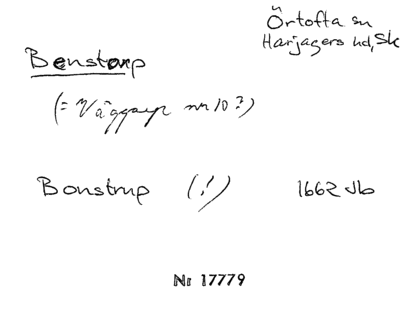 Örtofta sn
Harjagers hd, Sk
Benstorp
(= Väggarp nr 10?)
Bonstrup (!) 1662 Jb
Nr 17779